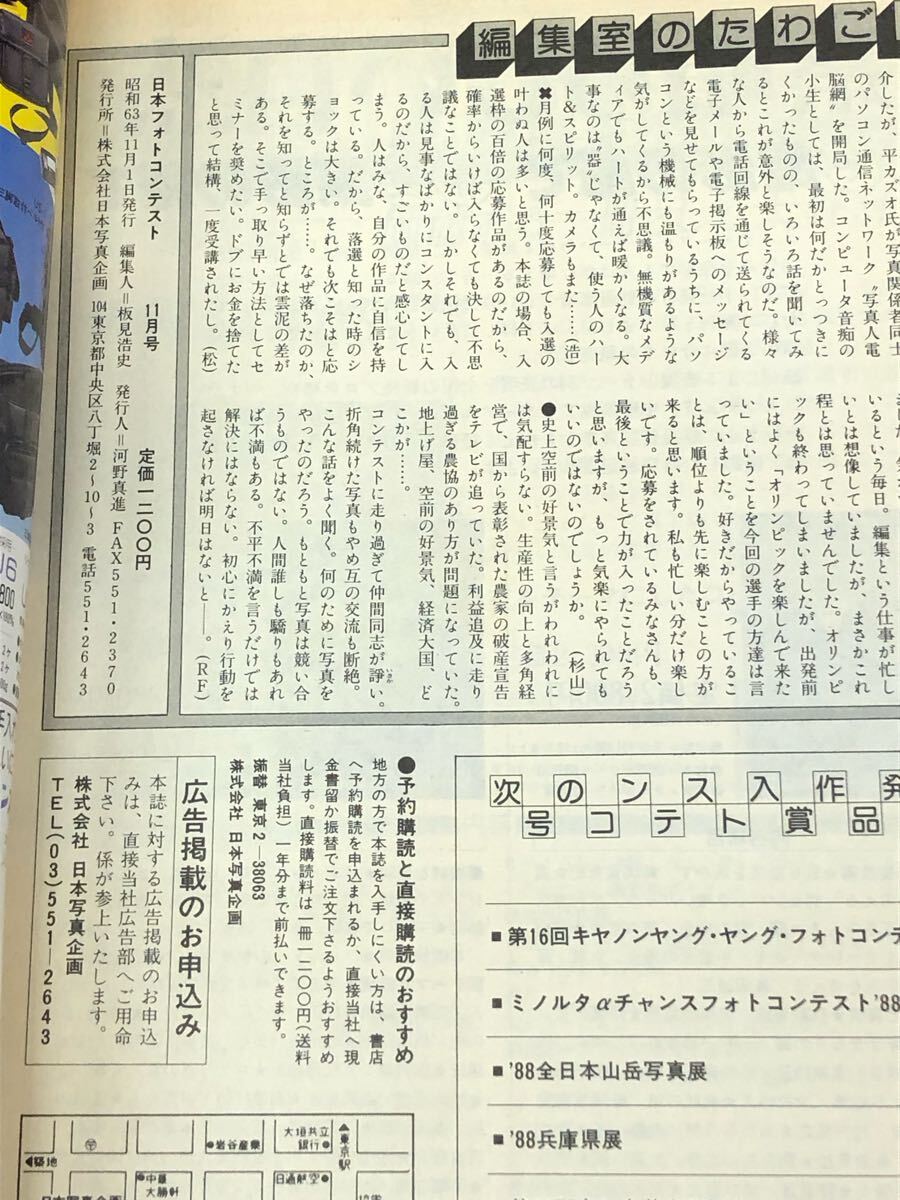 編集室のたわご
介したが、平カズオ氏が写真関係者同士
のパソコン通信ネットワーク〝写真人電
脳網〟を開局した。コンピュータ音痴の
小生としては、最初は何だかとっつきに
くかったものの、いろいろ話を聞いてみ
るとこれが意外と楽しそうなのだ。様々
な人から電話回線を通じて送られてくる
電子メールや電子掲示板へのメッセージ
などを見せてもらっているうちに、パソ
コンという機械にも温もりがあるような
気がしてくるから不思議。無機質なメデ
ィアでもハートが通えば暖かくなる。大
事なのは〝器〟じゃなくて、使う人のハー
ト&スピリット。カメラもまた……(浩)
✖月例に何度、何十度応募しても入選の
叶わぬ人は多いと思う。本誌の場合、入
選枠の百倍の応募作品があるのだから、
確率からいけば入らなくても決して不思
議なことではない。しかしそれでも、入
る人は見事なばかりにコンスタントに入
るのだから、すごいものだと感心してし
まう。人はみな、自分の作品に自信を持
っている。だから、落選と知った時のシ
ョックは大きい。それでも次こそはと応
募する。ところが……。なぜ落ちたのか、
それを知ってと知らずとでは雲泥の差が
ある。そこで手っ取り早い方法としてセ
ミナーを奨めたい。ドブにお金を捨てた
と思って結構、一度受講されたし。(松)
いるという毎日。編集という仕事が忙し
いとは想像していましたが、まさかこれ
程とは思っていませんでした。オリンピ
ックも終わってしまいましたが、出発前
にはよく「オリンピックを楽しんで来た
い」ということを今回の選手の方達は言
っていました。好きだからやっているこ
とは、順位よりも先に楽しむことの方が
来ると思います。私も忙しい分だけ楽し
いです。応募をされているみなさんも、
最後ということで力が入ったことだろう
と思いますが、もっと気楽にやられても
いいのではないのでしょうか。(杉山)
●史上空前の好景気と言うがわれわれに
は気配すらない。生産性の向上と多角経
営で、国から表彰された農家の破産宣告
をテレビが追っていた。利益追及に走り
過ぎる農協のあり方が問題になっていた。
地上げ屋、空前の好景気、経済大国、ど
こかが……。
コンテストに走り過ぎて仲間同志が諍い。
いさか
折角続けた写真もやめ互の交流も断絶。
こんな話をよく聞く。何のために写真を
やったのだろう。もともと写真は競い合
うものではない。人間誰しも驕りもあれ
ば不満もある。不平不満を言うだけでは
解決にはならない。初心にかえり行動を
起さなければ明日はないと―。(RF)
日本フォトコンテスト 11月号 定価一二〇〇円
昭和63年11月1日発行 編集人=板見浩史 発行人=河野真進 FAX551・2370
発行所=株式会社日本写真企画 104東京都中央区八丁堀2~10~3 電話551・2643
次のンス入作発
号コテト賞品
■第16回キヤノンヤング・ヤング・フォトコンテ
■ミノルタαチャンスフォトコンテスト'88
■'88全日本山岳写真展
■'88兵庫県展
●予約購読と直接購読のおすすめ
地方の方で本誌を入手しにくい方は、書店
へ予約購読を申込まれるか、直接当社へ現
金書留か振替でご注文下さるようおすすめ
します。直接購読料は一冊一二〇〇円(送料
当社負担)一年分まで前払いできます。
振替 東京2―38063
株式会社 日本写真企画
広告掲載のお申込み
本誌に対する広告掲載のお申込
みは、直接当社広告部へご用命
下さい。係が参上いたします。
株式会社 日本写真企画
TEL(03)551―2643
▲東京駅
大垣共立
銀行●
●岩谷産業
〒
◀築地
●中華
大勝軒
日通航空●
日本写真企画